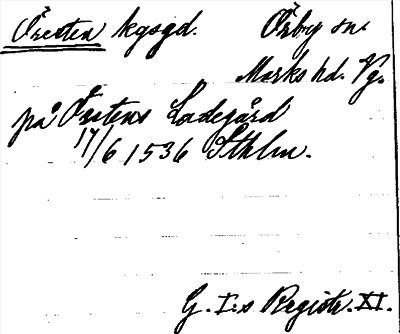 Öresten kgsgd. Örby sn.
Marks hd. Vg.
på Örstens Ladegård
17/6 1536 Sthlm.
G. I:s Registr. XI.